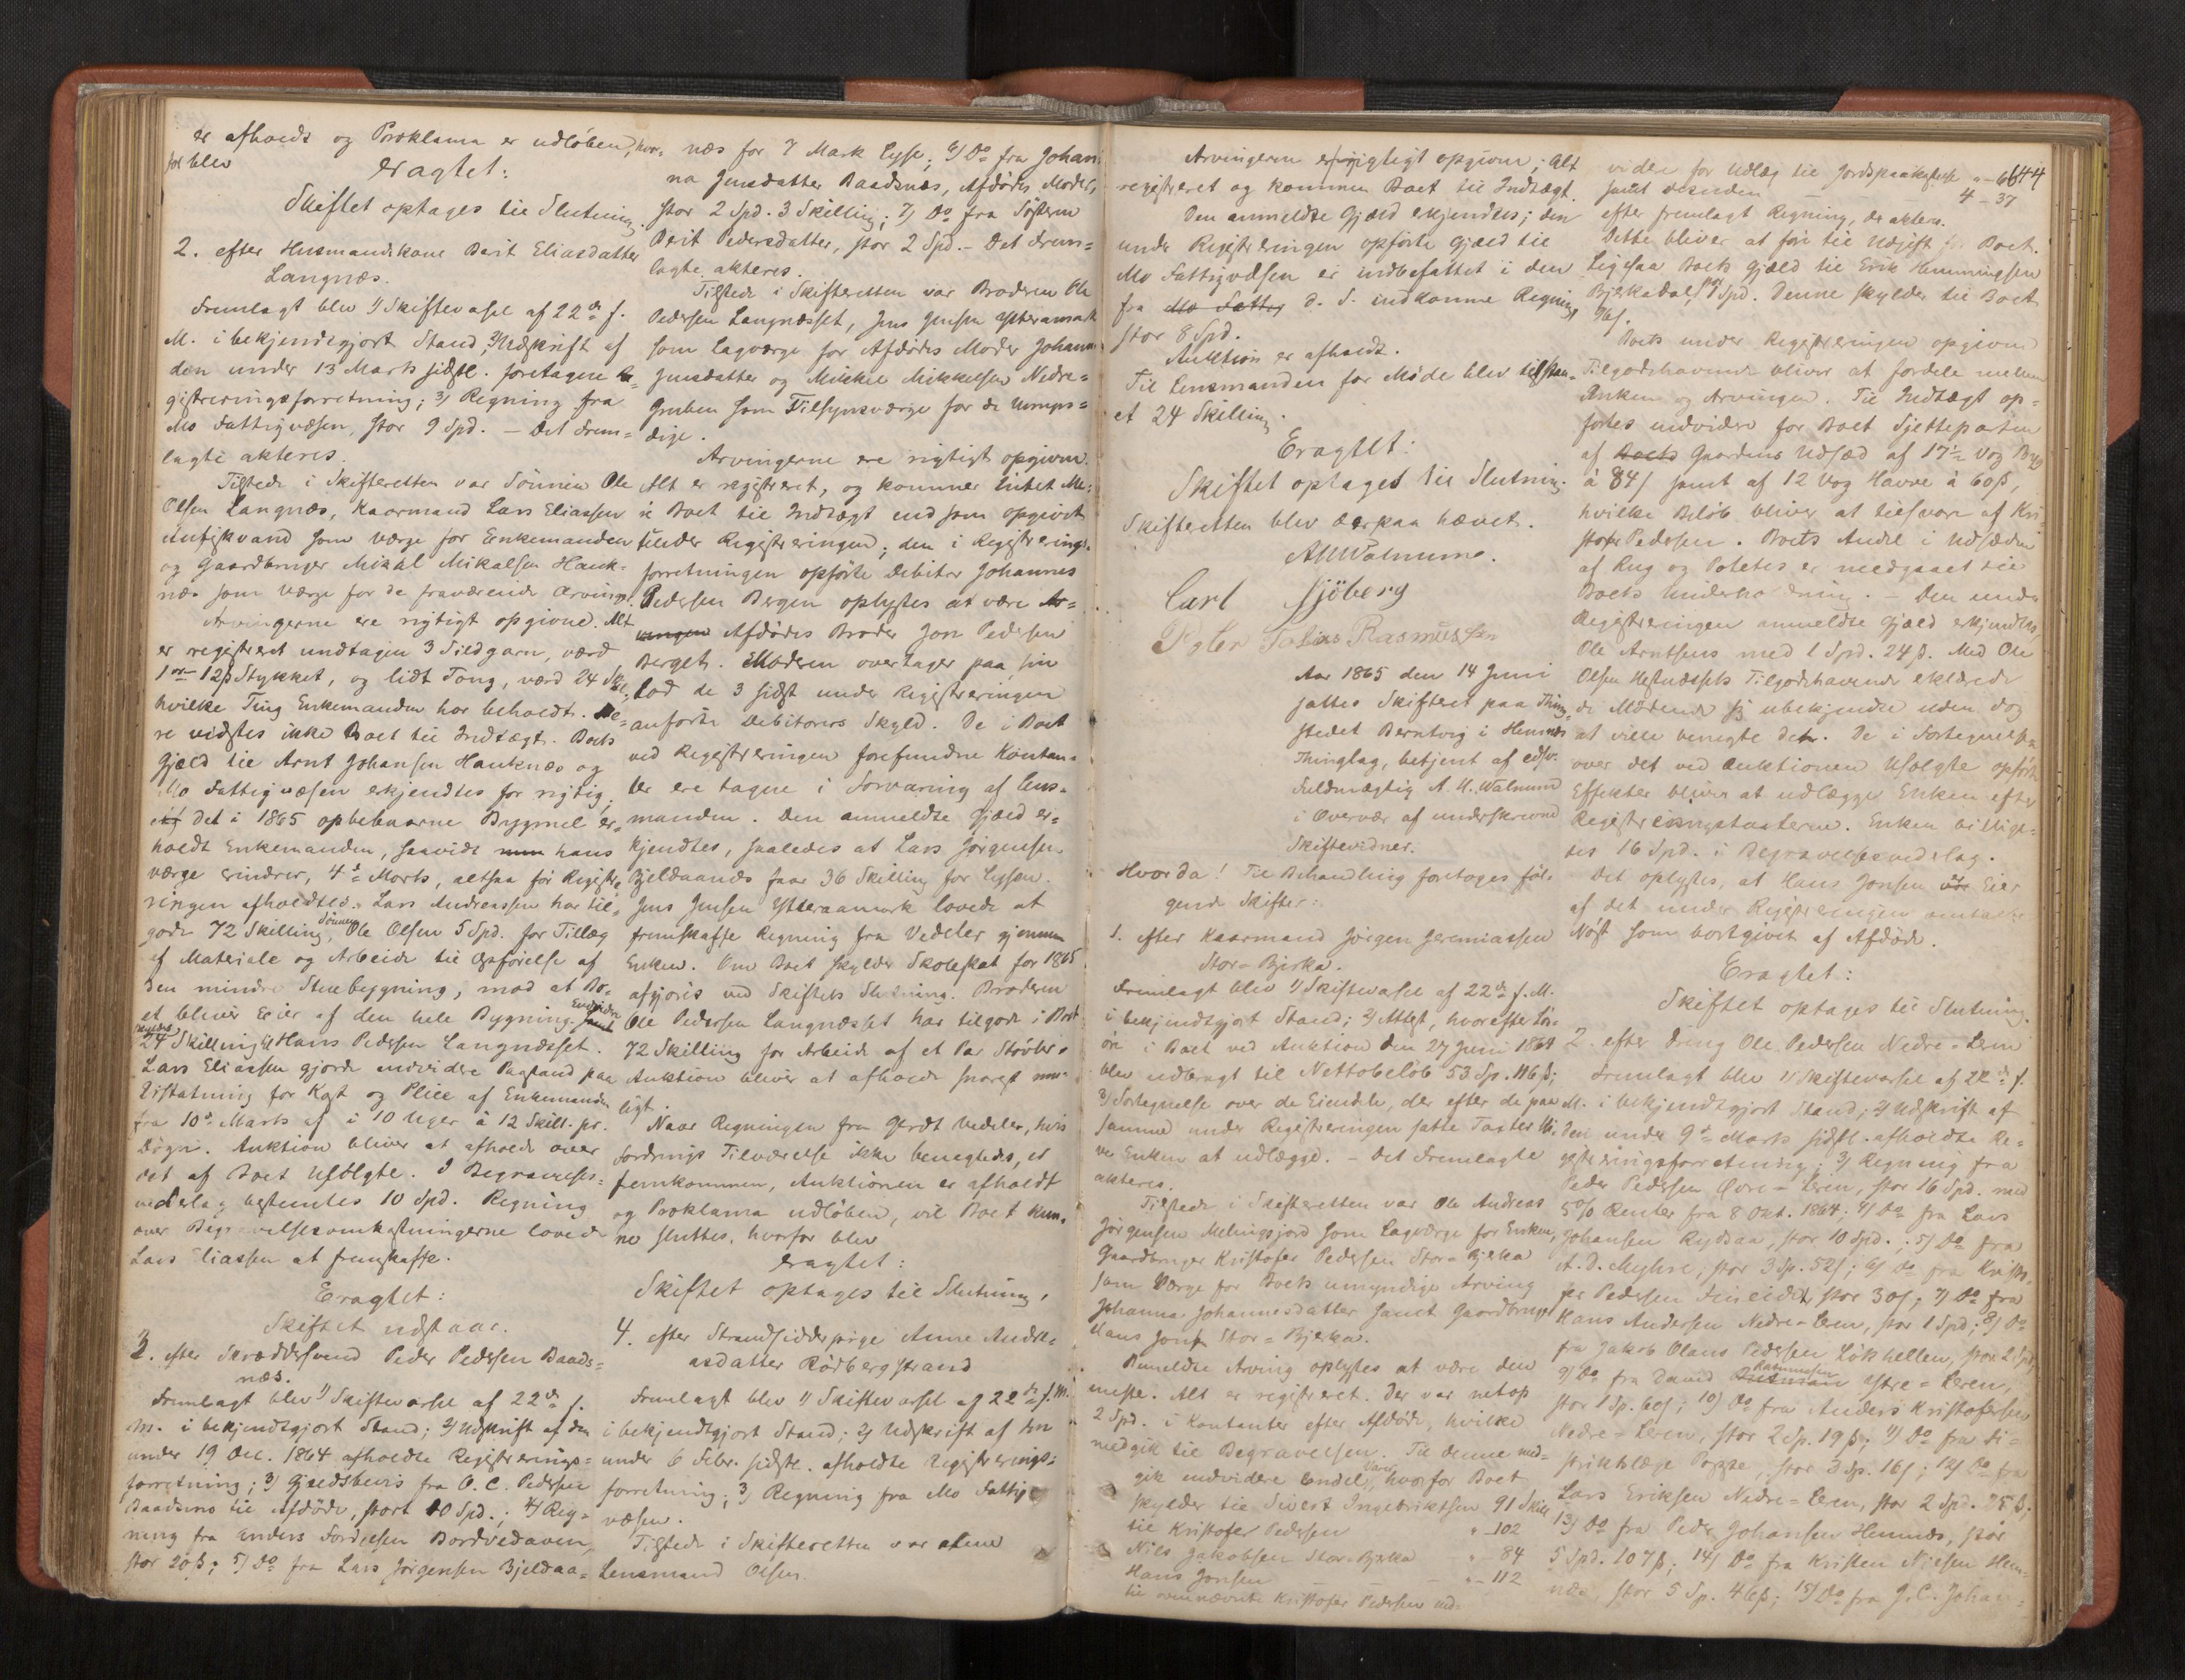 er afholdt og Proklama er udløben, hvor-
for blev
eragtet:
Skiftet optages til Slutning.
2. efter Husmandskone Berit Eliasdatter
Langnæs.
Fremlagt blev 1) Skiftevarsel af 22de f.
M. i bekjendtgjort Stand, 2) Udskrift af
den under 13 Marts sidstl. foretagne Re-
gistreringsforretning; 3) Regning fra
Mo Fattigvæsen, stor 9 Spd. – Det Frem-
lagte akteres.
Tilstede i Skifteretten var Sønnen Ole
Olsen Langnæs, Kaarmand Lars Eliassen
Autiskvand som Værge for Enkemanden
og Gaardbruger Mikal Mikalsen Hauk-
næs som Værge for de fraværende Arvinger.
Arvingerne ere rigtigt opgivne. Alt
er registreret undtagen 3 Sildgarn, værd
12 ß Stykket, og lidt Toug, værd 24 Skill.,
hvilke Ting Enkemanden har beholdt. Me-
re vidstes ikke Boet til Indtægt. Boets
Gjæld til Arnt Johansen Hauknæs og
Mo Fattigvæsen erkjendtes for rigtig,
det i 1865 opbebaarne Bygmel er-
holdt Enkemanden, saavidt hans
Værge erindrer, 4de Marts, altsaa før Registre-
ringen afholdtes. Lars Andreassen har til-
gode 72 Skilling, Sønnen Ole Olsen 5 Spd. for Tillæg
af Materiale og Arbeide til Opførelse af
den mindre Stuebygning, mod at Bo-
et bliver Eier af den hele Bygning. Endvidere
skyldes 24 Skilling til Hans Pedersen Langnæsset.
Lars Eliassen gjorde endvidere Paastand paa
Erstatning for Kost og Pleie af Enkemanden
fra 10de Marts af i 10 Uger à 12 Skill. pr.
Døgn. Auktion bliver at afholde over
det af Boet Usolgte. I Begravelses-
vederlag bestemtes 10 Spd. Regning
over Begravelsesomkostningerne lovede
Lars Eliassen at fremskaffe.
Eragtet:
Skiftet udstaar.
3. efter Skræddersvend Peder Pedersen Baads-
næs.
Fremlagt blev 1) Skiftevarsel af 22de f.
M. i bekjendtgjort Stand; 2) Udskrift af den
under 19 Dec. 1864 afholdte Registrerings-
forretning; 3) Gjældsbevis fra O. C. Pedersen
Baadsnæs til Afdøde, stort 10 Spd.; 4) Reg-
ning fra Anders Fordelsen Bordvedaven,
stor 20 ß; 5) Do fra Lars Jørgensen Bjeldaa-
næs for 7 Mark Lyse; 6) Do fra Johan-
na Jensdatter Baadsnæs, Afdødes Moder,
stor 2 Spd. 3 Skilling; 7) Do fra Søsteren
Berit Pedersdatter, stor 2 Spd. – Det Frem-
lagte akteres.
Tilstede i Skifteretten var Broderen Ole
Pedersen Langnæsset, Jens Jensen Ytteramark
som Lagværge for Afdødes Moder Johanna
Jensdatter og Mikkel Mikkelsen Nedre-
Gruben som Tilsynsværge for de Umyn-
dige.
Arvingerne ere rigtigt opgivne.
Alt er registreret, og kommer intet Me-
re Boet til Indtægt end som opgivet
under Registreringen; den i Registrerings-
forretningen opførte Debitor Johannes
Pedersen Bergen oplystes at være Ar-
vingen Afdødes Broder Jon Pedersen
Berget. Moderen overtager paa sin
Lod de 3 sidst under Registreringen
anførte Debitorers Skyld. De i Boet
ved Registreringen forefundne Kontan-
ter ere tagne i Forvaring af Lens-
manden. Den anmeldte Gjæld er-
kjendtes, saaledes at Lars Jørgensen
Bjeldaanæs faar 36 Skilling for Lysen.
Jens Jensen Ytteraamark lovede at
fremskaffe Regning fra Vedeler gjennem
Enken. Om Boet skylder Skoleskat for 1865
afgjøres ved Skiftets Slutning. Broderen
Ole Pedersen Langnæsset har tilgode i Boet
72 Skilling for Arbeide af et Par Støvler.
Auktion bliver at afholde snarest mu-
ligt.
Naar Regningen fra Gerdt Vedeler, hvis
Fordrings Tilværelse ikke benegtedes, er
fremkommen, Auktionen er afholdt
og Proklama udløben, vil Boet kun-
ne sluttes, hvorfor blev
eragtet:
Skiftet optages til Slutning.
4. efter Strandsidderpige Anne Andre-
asdatter Rødbergstrand
Fremlagt blev 1) Skiftevarsel af 22de f. M.
i bekjendtgjort Stand; 2) Udskrift af den
under 6 Febr. sidstl. afholdte Registrerings-
forretning; 3) Regning fra Mo Fattig-
væsen.
Tilstede i Skifteretten var alene
Lensmand Olsen.
Arvingerne ere rigtigt opgivne; Alt
registreret og kommen Boet til Indtægt.
Den anmeldte Gjæld erkjendtes; den
under Registreringen opførte Gjæld til
Mo Fattigvæsen er indbefattet i den
fra Mo Fattig d. S. indkomne Regning,
stor 8 Spd.
Auktion er afholdt.
Til Lensmanden for Møde blev tilstaa-
et 24 Skilling.
Eragtet:
Skiftet optages til Slutning.
Skifteretten blev derpaa hævet.
A. U. Walnum.
Carl Sjöberg
Peter Tobias Rasmussen
Aar 1865 den 14 Juni
sattes Skifteret paa Thing-
stedet Berntvig i Hemnæs
Thinglag, betjent af edsv.
Fuldmægtig A. U. Walnum
i Overvær af underskrevne
Skiftevidner.
Hvorda! Til Behandling foretoges føl-
gende Skifter:
1. efter Kaarmand Jørgen Jeremiassen
Stor-Bjerka.
Fremlagt blev 1) Skiftevarsel af 22de f. M.
i bekjendtgjort Stand; 2) Attest, hvorefter Løs-
øre i Boet ved Auktion den 27 Juni 1864
blev udbragt til Nettobeløb 53 Sp. 116 ß;
3) Fortegnelse over de Eiendele, der efter de paa
samme under Registreringen satte Taxter bli-
ve Enken at udlægge. – Det Fremlagte
akteres.
Tilstede i Skifteretten var Ole Andreas
Jørgensen Melingsjord som Lagværge for Enken,
Gaardbruger Kristofer Pedersen Stor-Bjerka
som Værge for Boets umyndige Arving
Johanna Johannesdatter samt Gaardbruger
Hans Jons. Stor-Bjerka.
Anmeldte Arving oplystes at være den
eneste. Alt er registreret. Der var netop
2 Spd. i Kontanter efter Afdøde, hvilke
medgik til Begravelsen. Til denne med-
gik endvidere Endel Varer, hvorfor Boet
skylder til Sivert Ingebriktsen 91 Skill
til Kristofer Pedersen " – 102
Nils Jakobsen Stor-Bjerka " – 84
Hans Jonsen " – 112
til ovennævnte Kristofer Pedersen end-
644
videre for Udlæg til Jordpaakastelse " – 6
samt desuden 4 – 37
efter fremlagt Regning, der akteres.
Dette bliver at føre til Udgift for Boet.
Ligesaa Boets Gjæld til Erik Hemmingsen
Bjerkadal, Spd. Denne skylder til Boet
Boets under Registreringen opgivne
Tilgodehavende bliver at fordele mellem
Enken og Arvingen. Til Indtægt op-
føres endvidere for Boet Sjetteparten
af Boets Gaardens Udsæd af 17½ Vog Byg
à 84 ß samt af 12 Vog Havre à 60 ß,
hvilke Beløb bliver at tilsvare af Kri-
stofer Pedersen. Boets Andel i Udsæden
af Rug og Potetes er medgaaet til
Boets Underholdning. – Den under
Registreringen anmeldte Gjæld erkjendtes,
Ole Arntsens med 1 Spd. 24 ß. Med Ole
Olsen Hestnæssets Tilgodehavende erklærede
de Mødende sig ubekjendte uden dog
at ville benegte det. De i Fortegnelsen
over det ved Auktionen Usolgte opførte
Effekter bliver at udlægge Enken efter
Registreringstaxterne. Enken billige-
des 16 Spd. i Begravelsesvederlag.
Det oplystes, at Hans Jonsen er Eier
af det under Registreringen omtalte
Nøst som bortgivet af Afdøde.
Eragtet:
Skiftet optages til Slutning.
2. efter Dreng Ole Pedersen Nedre-Leren
Fremlagt blev 1) Skiftevarsel af 22de f.
M. i bekjendtgjort Stand; 2) Udskrift af
den under 9de Marts sidstl. afholdte Re-
gistreringsforretning; 3) Regning fra
Peder Pedersen Øvre-Leren, stor 16 Spd. med
5% Renter fra 8 Okt. 1864; 4) Do fra Lars
Johansen Rydsaa, stor 10 Spd.; 5) Do fra
A. D. Meyhre, stor 3 Sp. 52 ß; 6) Do fra Kristo-
fer Pedersen Fineidet, stor 30 ß; 7) Do fra
Hans Andersen Nedre-Leren, stor 1 Spd; 8) Do
fra Jakob Olaus Pedersen Løkhellen, stor 2 Spd;
9) Do fra David Rasmussen Øfre-Leren,
stor 1 Sp. 60 ß; 10) Do fra Anders Kristofersen
Nedre-Leren, stor 2 Sp. 19 ß; 11) Do fra Di-
striktslæge Poppe, stor 3 Sp. 16 ß; 12) Do fra
Lars Eriksen Nedre-Leren, stor 2 Spd. 75 ß;
13) Do fra Peder Johansen Hemnæs, stor
5 Spd. 107 ß; 14) Do fra Kristen Nilsen Hem-
næs, stor 5 Sp. 46 ß; 15) Do fra J. C. Johan-